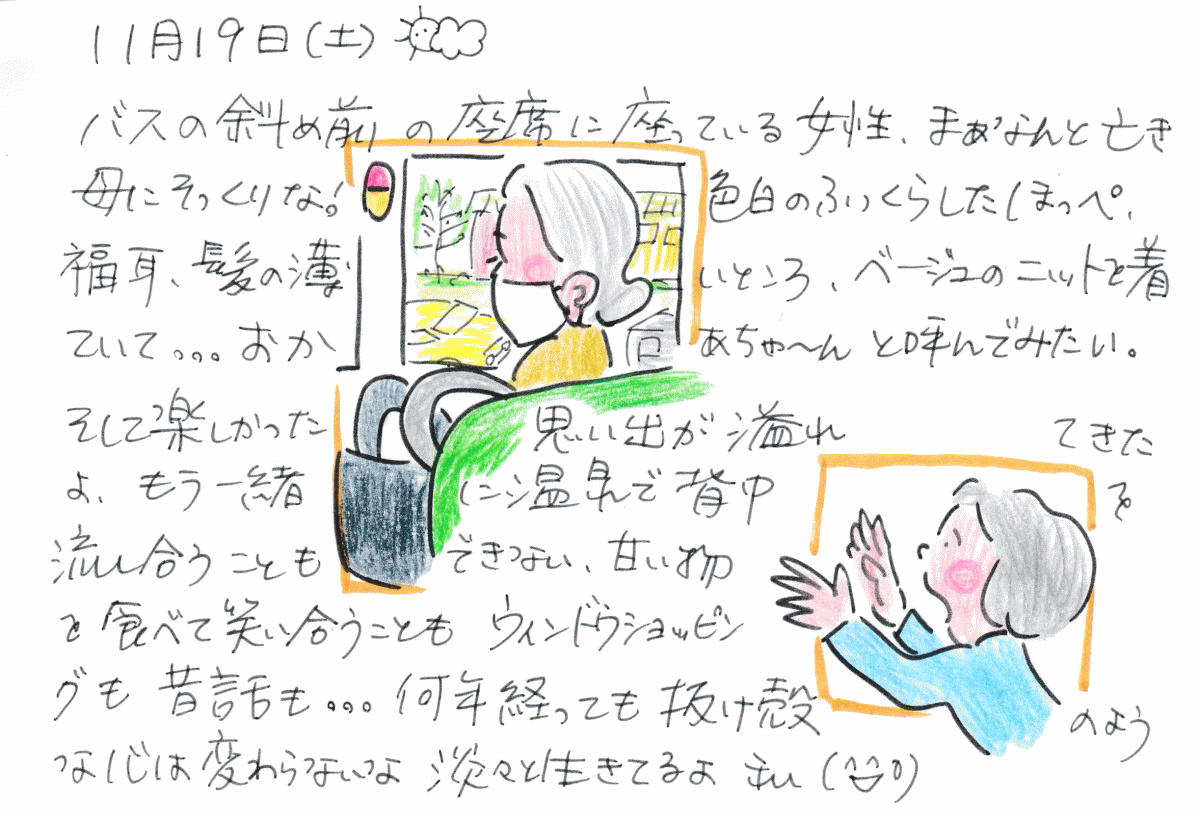 11月19日(土)
バスの斜め前の座席に座っている女性、まぁなんと亡き
母にそっくりな! 色白のふっくらしたほっぺ、
福耳、髪の薄いところ、ベージュのニットを着
ていて...おかあちゃ〜んと呼んでみたい。
そして楽しかった思い出が溢れてきた
よ、もう一緒に温泉で背中を
流し合うこともできない、甘い物
を食べて笑い合うこともウィンドウショッピン
グも昔話も...何年経っても抜け殻のよう
な心は変わらないな 淡々と生きてるよ 私 (^^)